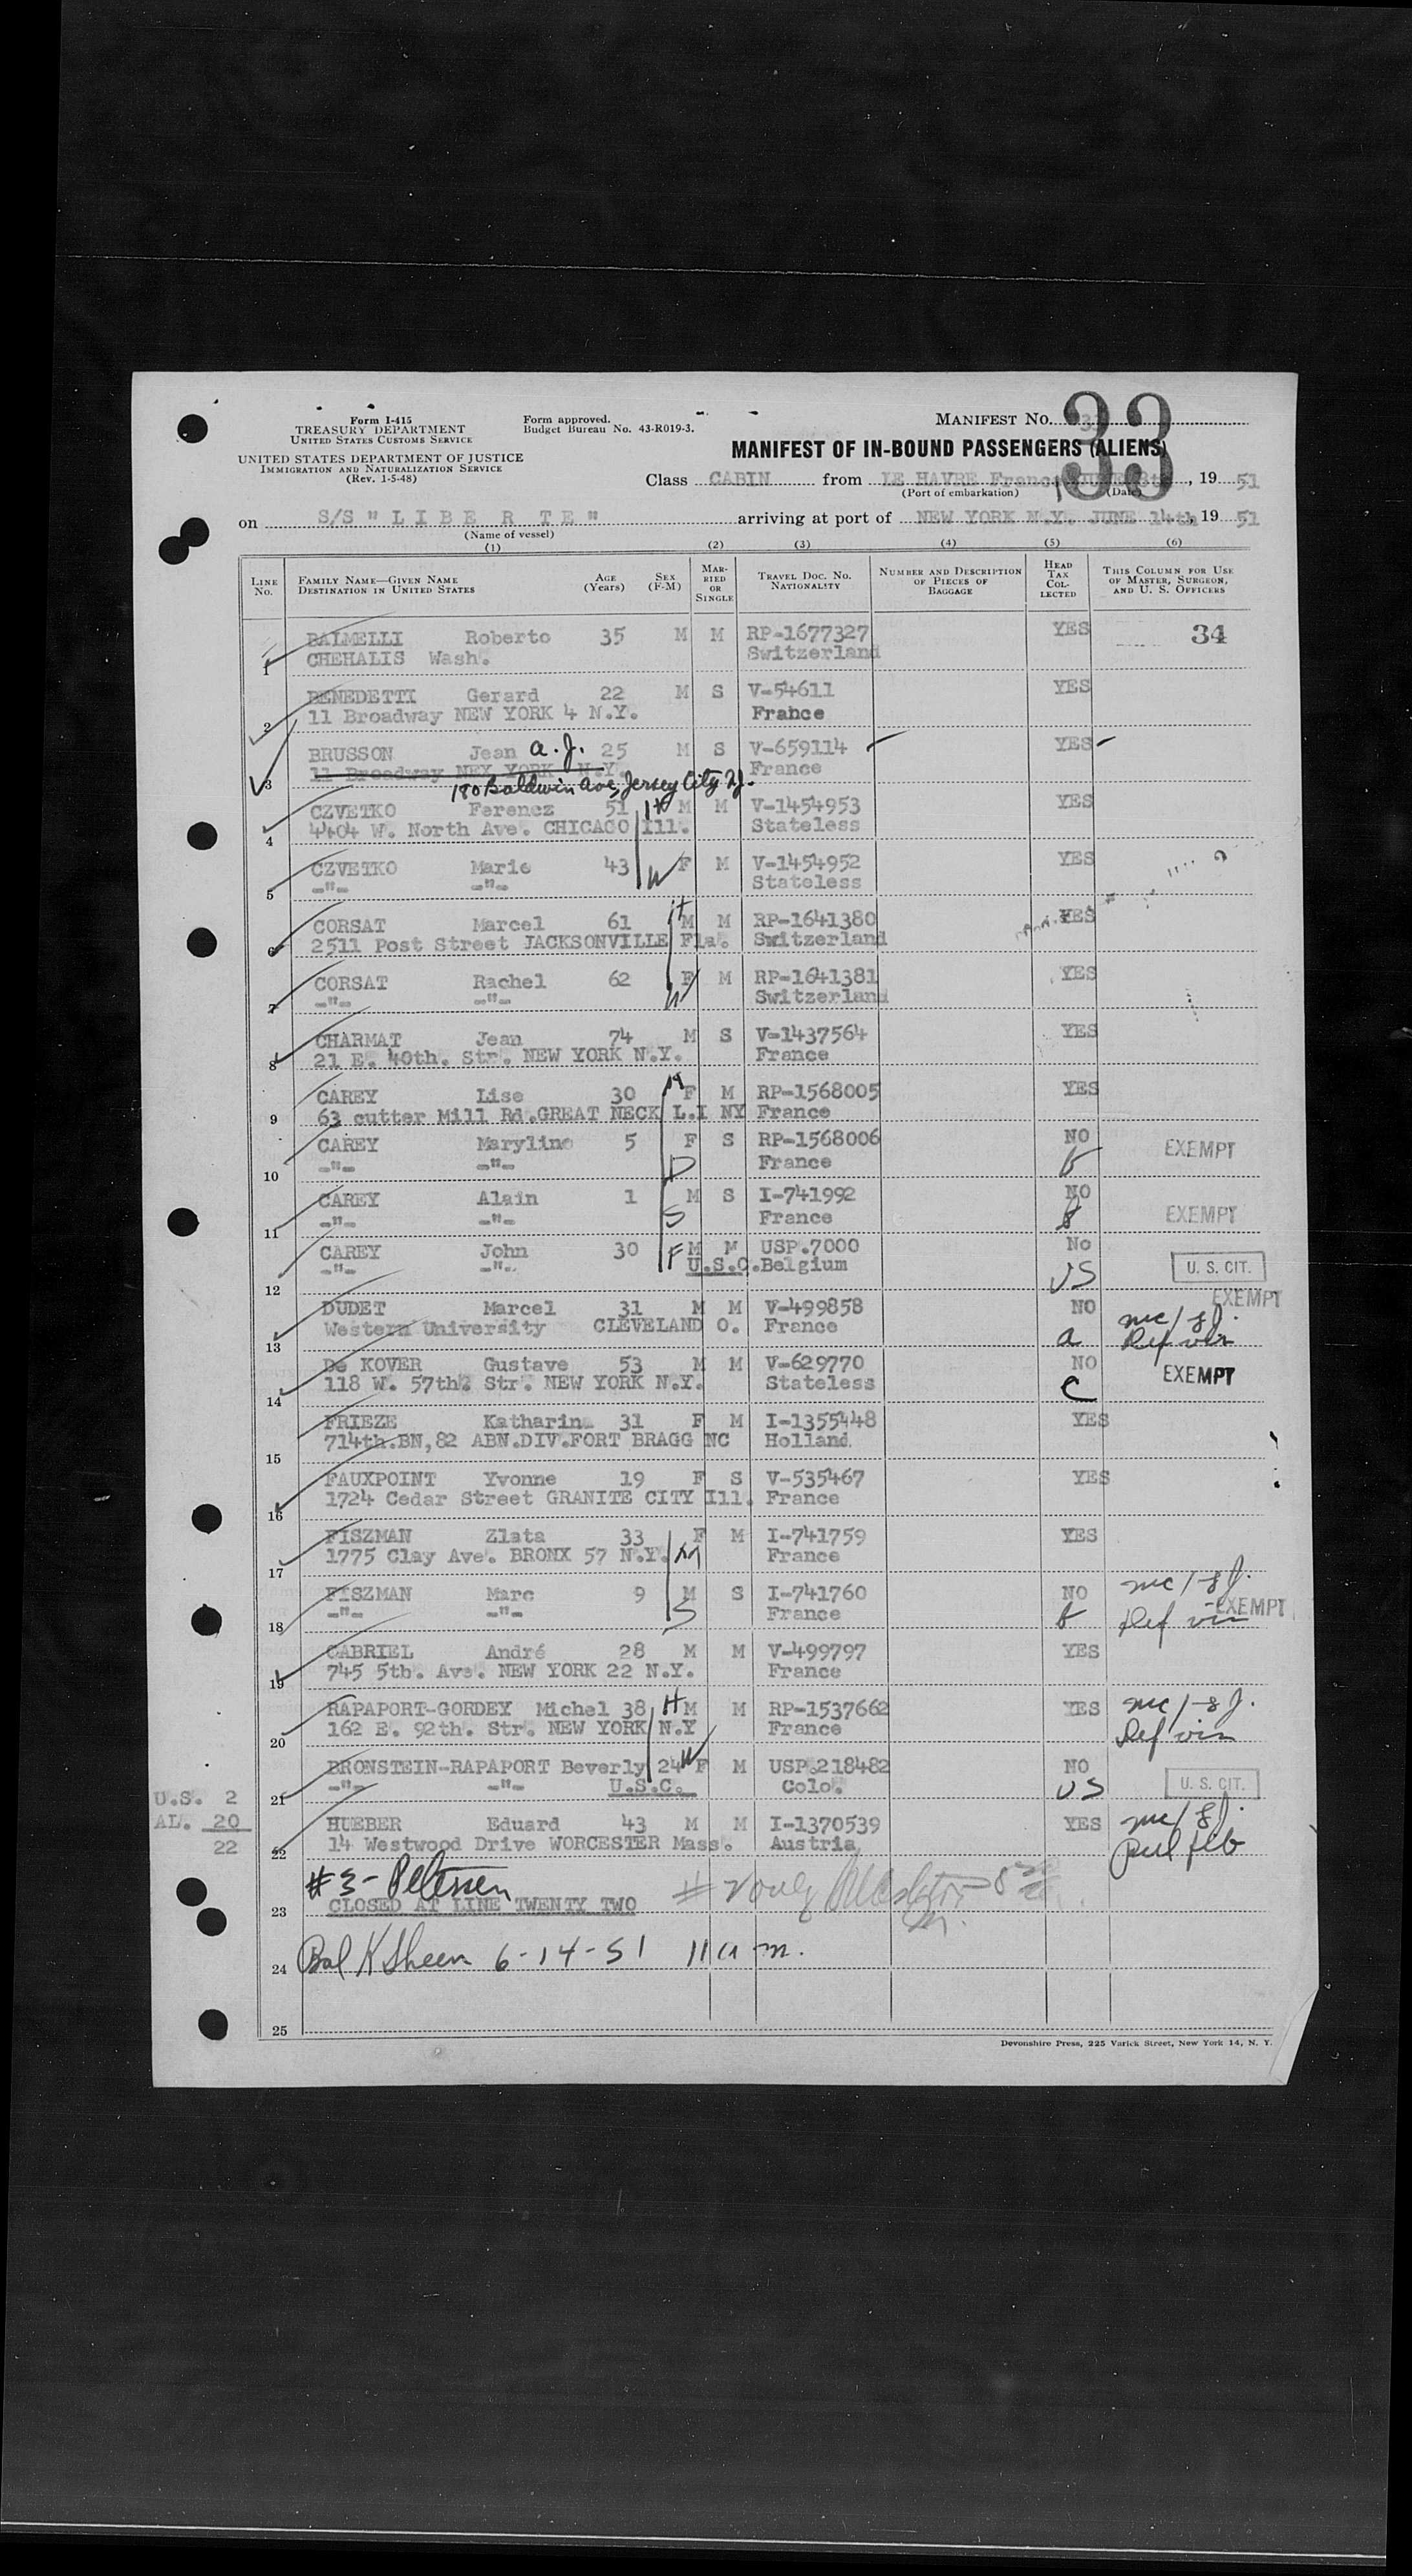 Form I-415
TREASURY DEPARTMENT
UNITED STATES CUSTOMS SERVICE
UNITED STATES DEPARTMENT OF JUSTICE
IMMIGRATION AND NATURALIZATION SERVICE
(Rev. 1-5-48)
Form approved.
Budget Bureau No. 43-R019-3.
MANIFEST No. 33
MANIFEST OF IN-BOUND PASSENGERS (ALIENS)
Class CABIN from LE HAVRE France JUNE 8th, 19 51
(Port of embarkation) (Date)
on S/S "LIBERTE" arriving at port of NEW YORK N.Y. JUNE 14th 19 51
(Name of vessel)
(1) (2) (3) (4) (5) (6)
LINE No. FAMILY NAME—GIVEN NAME DESTINATION IN UNITED STATES AGE (Years) SEX (F-M) MARRIED OR SINGLE TRAVEL DOC. No. NATIONALITY NUMBER AND DESCRIPTION OF PIECES OF BAGGAGE HEAD TAX COLLECTED THIS COLUMN FOR USE OF MASTER, SURGEON, AND U. S. OFFICERS
BALMELLI Roberto 35 M M RP-1677327 YES 34
1 CHEHALIS Wash. Switzerland
BENEDETTI Gerard 22 M S V-54611 YES
2 11 Broadway NEW YORK 4 N.Y. France
BRUSSON Jean A. J. 25 M S V-659114 YES
3 11 Broadway NEW YORK N.Y. France
180 Baldwin Ave, Jersey City NJ.
CZVETKO Ferencz 51 H M M V-1454953 YES
4 4404 W. North Ave. CHICAGO Ill. Stateless
CZVETKO Marie 43 W F M V-1454952 YES
5 -"- -"- Stateless
CORSAT Marcel 61 H M M RP-1641380 YES
6 2511 Post Street JACKSONVILLE Fla. Switzerland
CORSAT Rachel 62 W F M RP-1641381 YES
7 -"- -"- Switzerland
CHARMAT Jean 74 M S V-1437564 YES
8 21 E. 40th. Str. NEW YORK N.Y. France
CAREY Lise 30 M F M RP-1568005 YES
9 63 cutter Mill Rd.GREAT NECK L.I NY France
CAREY Maryline 5 F S RP-1568006 NO EXEMPT
10 -"- -"- D France
CAREY Alain 1 M S I-741992 NO EXEMPT
11 -"- -"- S France
CAREY John 30 F M M USP.7000 No
12 -"- -"- U.S.C.Belgium US U. S. CIT.
DUDET Marcel 31 M M V-499858 NO EXEMPT
13 Western University CLEVELAND O. France a
De KOVER Gustave 53 M M V-629770 NO EXEMPT
14 118 W. 57th. Str. NEW YORK N.Y. Stateless C
FRIEZE Katharina 31 F M I-1355448 YES
15 714th.BN,82 ABN.DIV.FORT BRAGG NC Holland
FAUXPOINT Yvonne 19 F S V-535467 YES
16 1724 Cedar Street GRANITE CITY Ill. France
FISZMAN Zlata 33 F M I-741759 YES
17 1775 Clay Ave. BRONX 57 N.Y. M France
FISZMAN Marc 9 M S I-741760 NO EXEMPT
18 -"- -"- S France
GABRIEL André 28 M M V-499797 YES
19 745 5th. Ave. NEW YORK 22 N.Y. France
RAPAPORT-GORDEY Michel 38 H M M RP-1537662 YES
20 162 E. 92th. Str. NEW YORK N.Y France
BRONSTEIN-RAPAPORT Beverly 24 W F M USP.218482 NO
21 -"- -"- U.S.C. Colo. US U. S. CIT.
HUEBER Eduard 43 M M I-1370539 YES
22 14 Westwood Drive WORCESTER Mass. Austria
U.S. 2
AL. 20
22
#3- Petersen
23 CLOSED AT LINE TWENTY TWO
24 Bal K Sheen 6-14-51 11 a m.
25
Devonshire Press, 225 Varick Street, New York 14, N. Y.